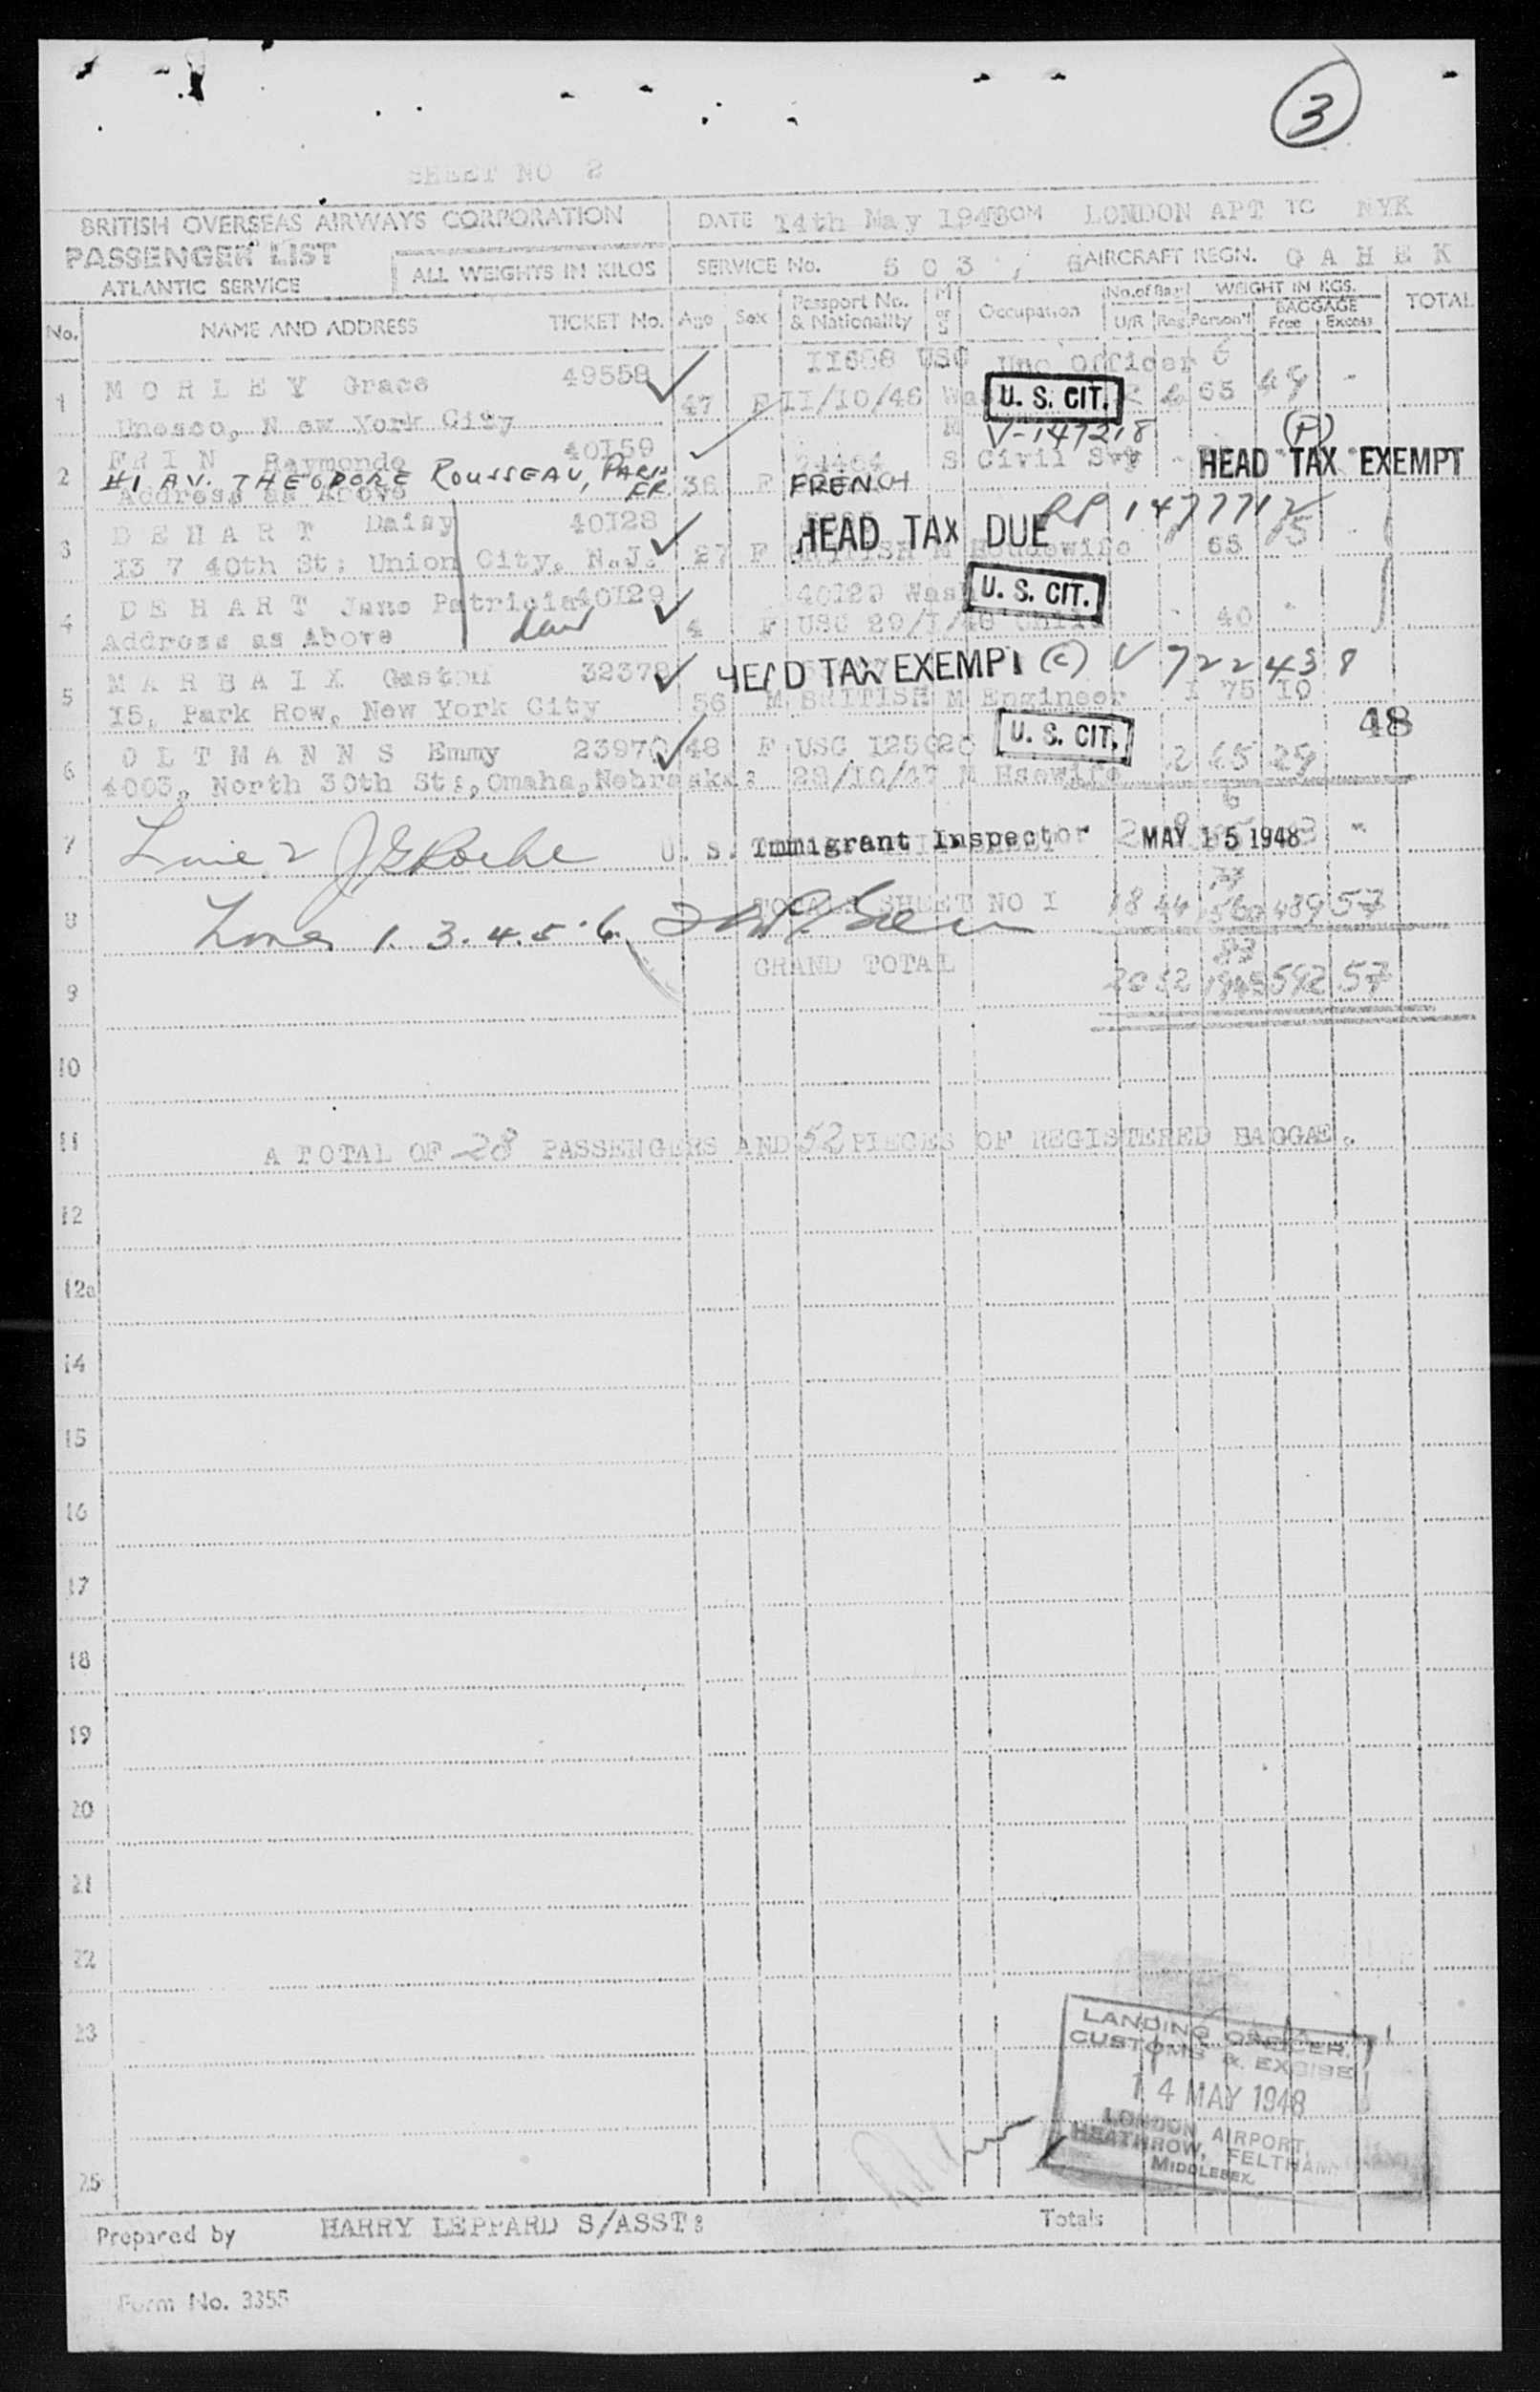 3
SHEET NO 2
BRITISH OVERSEAS AIRWAYS CORPORATION
PASSENGER LIST
ATLANTIC SERVICE
ALL WEIGHTS IN KILOS
DATE 14th May 1948 LONDON APT TO NYK
SERVICE No. 503 AIRCRAFT REGN. G A H E K
No. NAME AND ADDRESS TICKET No. Age Sex Passport No. & Nationality M or S Occupation No. of Bag. U/R Reg. WEIGHT IN KGS. Person'l BAGGAGE Free Excess TOTAL
1 M O R L E Y Grace 49558 11688 USC Uno Officer
Unesco, N ew York City 47 F II/I0/46 U. S. CIT. 65 49 -
2 F R I N Raymonde 40I59 V-147218 (P)
#1 AV. THEODORE ROUSSEAU, PARIS FR.
Address as Above 36 F FRENCH S Civil Svt HEAD TAX EXEMPT
3 D E H A R T Daisy 40I28 HEAD TAX DUE RP 1477712
I3 7 40th St; Union City, N.J. 27 F BRITISH M Housewife 65 15
4 D E H A R T Jane Patricia 40I29 40I29 Wash U. S. CIT.
Address as Above dau 4 F USC 29/I/48 Child - 40 -
5 M A R B A I X Gaston 32378 HEAD TAX EXEMPT (C) V 722438
I5, Park Row, New York City 56 M BRITISH M Engineer I 75 I0
48
6 O L T M A N N S Emmy 23970 48 F USC I25620 U. S. CIT. 2 65 29
4003, North 30th St;, Omaha, Nebraska; 29/I0/47 M Hsewife
7 Line 2 J G Roche U. S. Immigrant Inspector MAY 15 1948
8 Lines 1. 3. 4. 5. 6. TOTALS SHEET NO I 18 44 489 57
9 GRAND TOTAL 20 52 592 57
10
11 A TOTAL OF 28 PASSENGERS AND 52 PIECES OF REGISTERED BAGGAE.
12
12a
14
15
16
17
18
19
20
21
22
23
25
LANDING OFFICER,
CUSTOMS & EXCISE
14 MAY 1948
LONDON AIRPORT,
HEATHROW, FELTHAM
MIDDLESEX.
Prepared by HARRY LEPPARD S/ASST; Totals
Form No. 3355